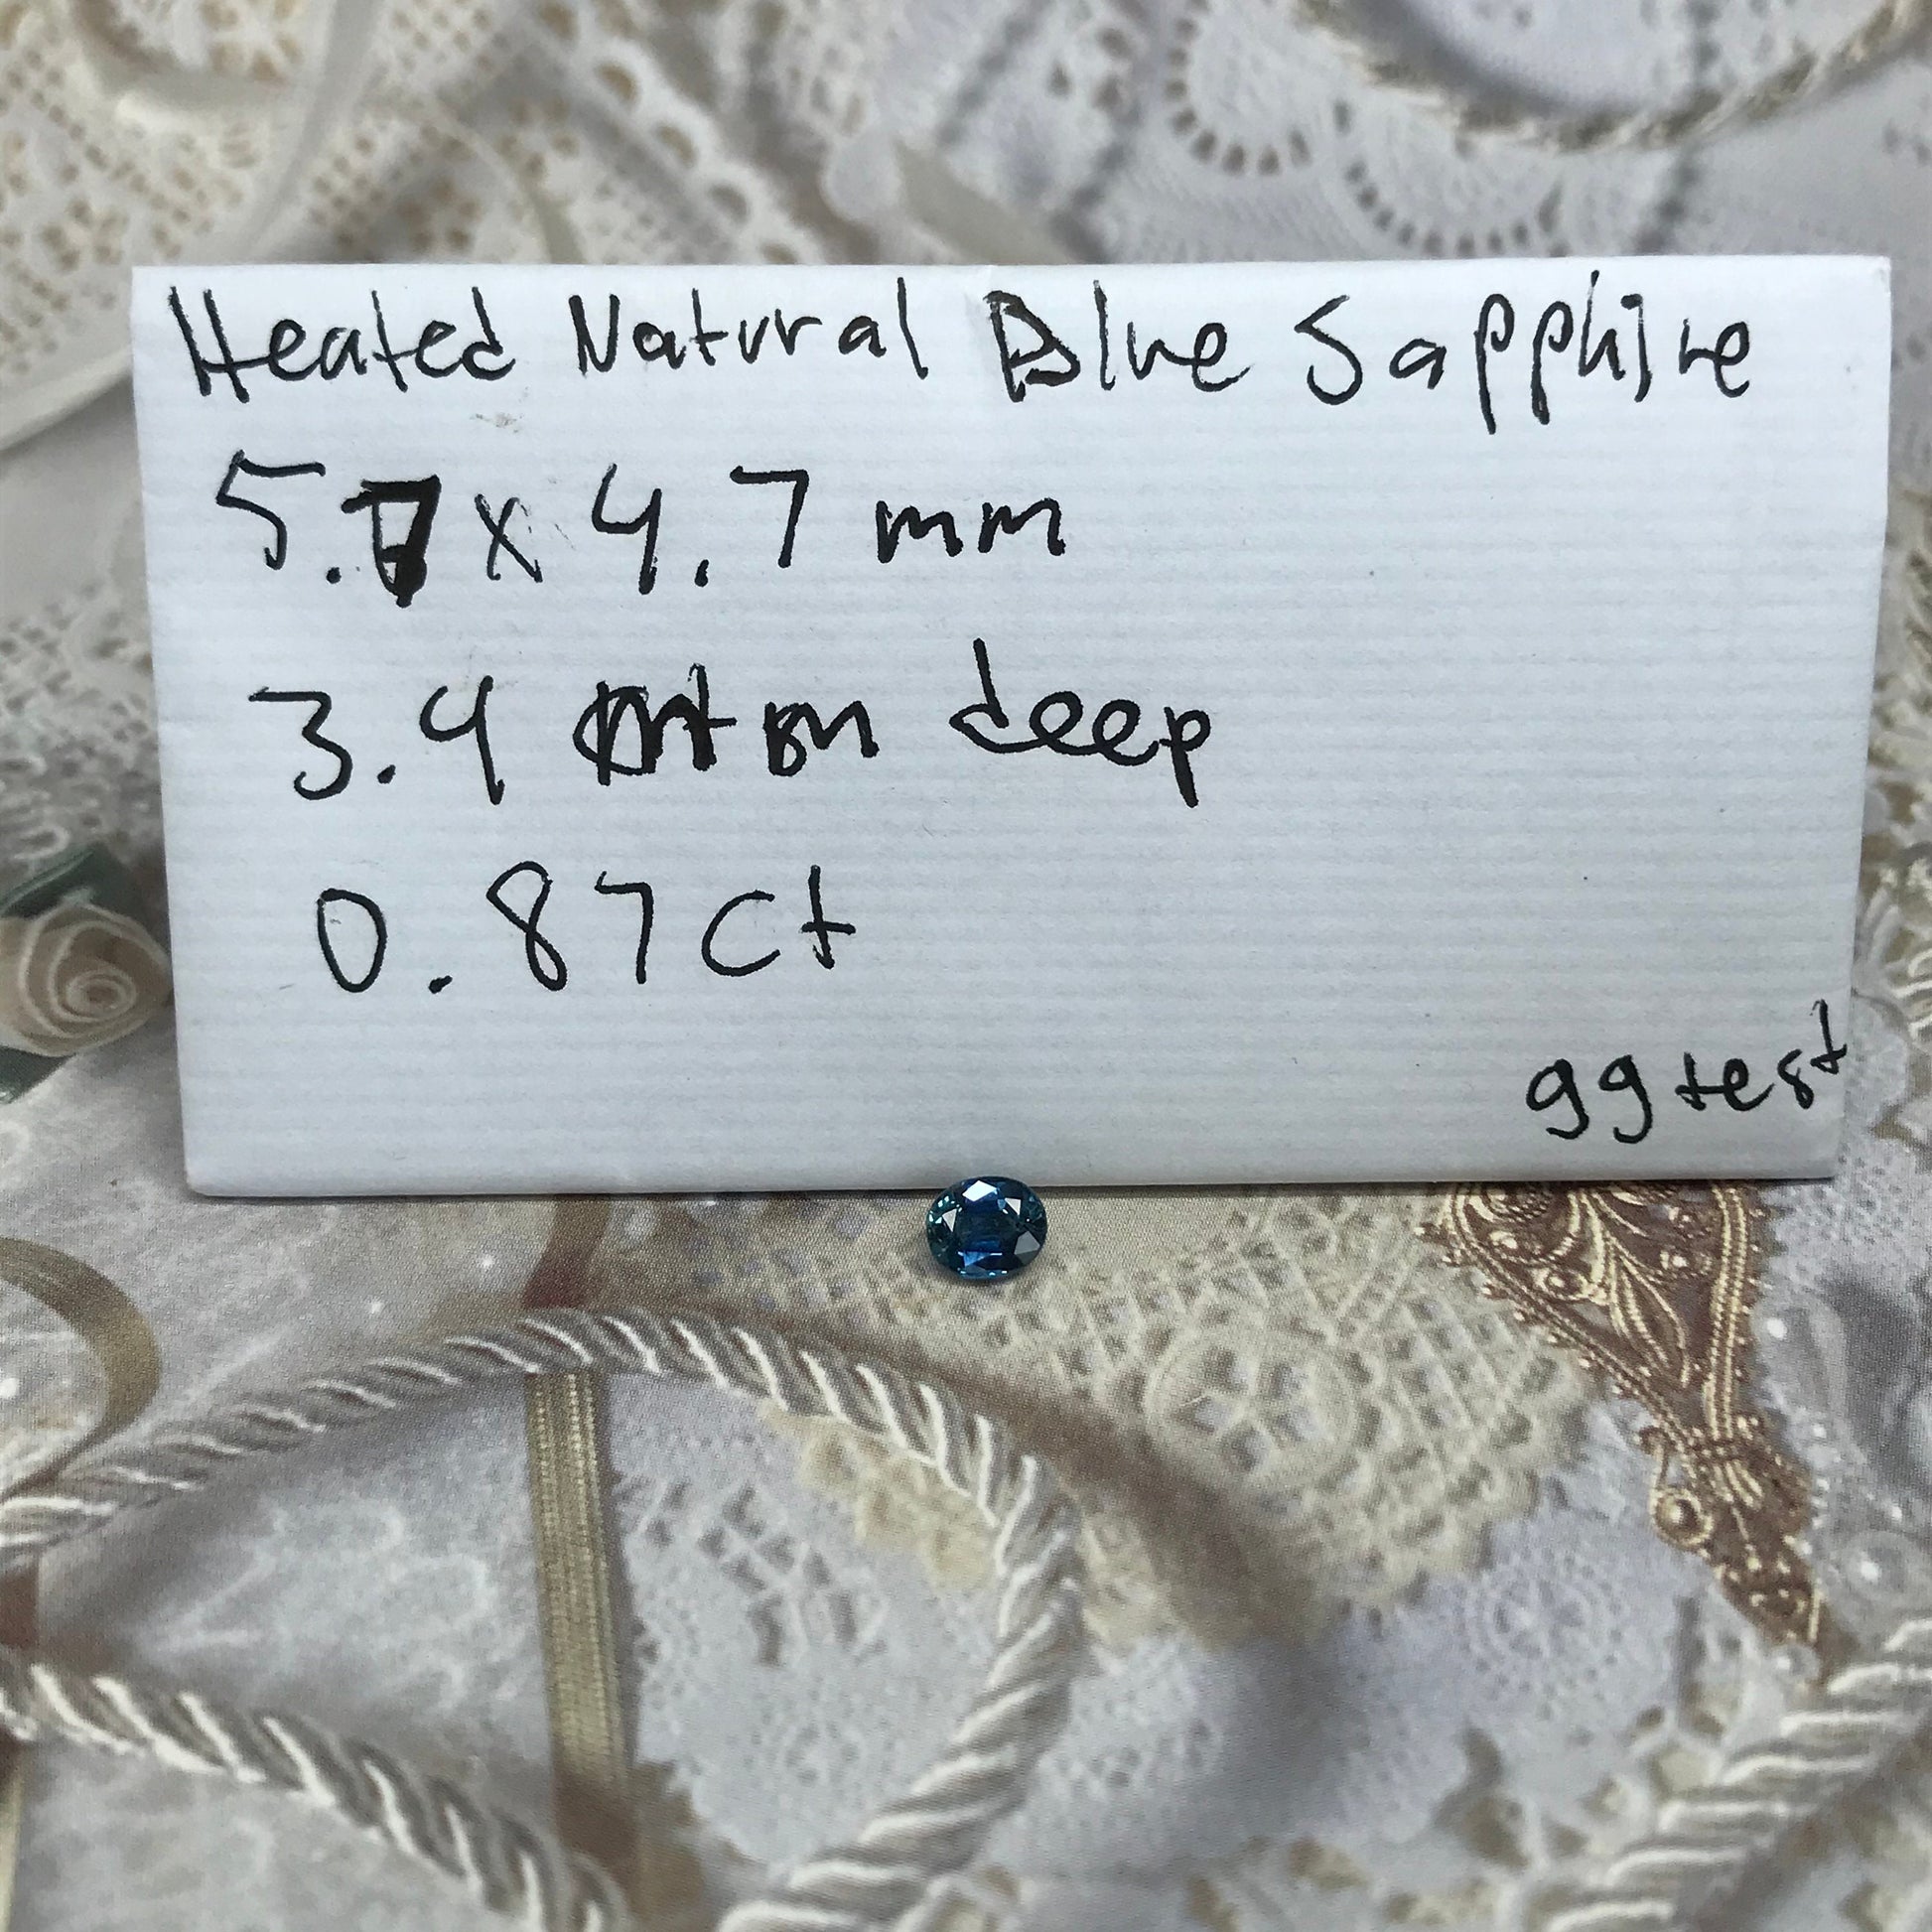 Heated Natural Blue Sapphire
5.7 x 4.7 mm
3.4 mm deep
0.87 Ct
ggtest